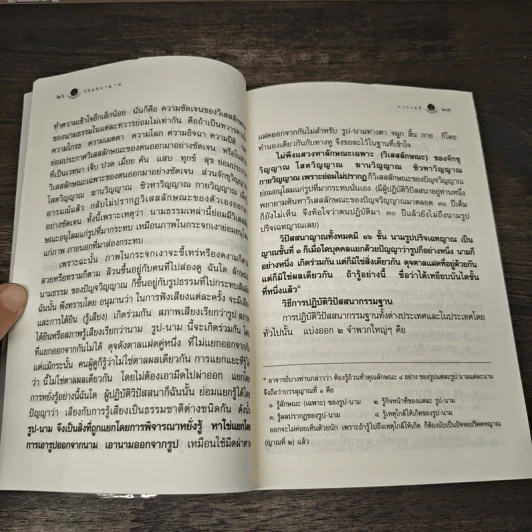 ๒๖
วิปัสสนาญาณ
ทำความเข้าใจอีกเล็กน้อย นั่นก็คือ ความชัดเจนของวิเสสลักษณะ
ของนามธรรมในแต่ละทวารย่อมไม่เท่ากัน คือถ้าเป็นทวารทางใจ
ความโกรธ ความเมตตา ความโลภ ความอิจฉา ความปีติ
ย่อมประกาศวิเสสลักษณะของตนออกมาอย่างชัดเจน หรือ
ที่เป็นเวทนา เจ็บ ปวด เมื่อย คัน แสบ ทุกข์ สุข ย่อมประกาศ
วิเสสลักษณะของตนออกมาอย่างชัดเจน ส่วนจักขุวิญญาณ
โสตวิญญาณ ฆานวิญญาณ ชิวหาวิญญาณ กายวิญญาณ เมื่อรู้
อารมณ์แล้ว กลับไม่ปรากฏวิเสสลักษณะของตัวเองออกมา
อย่างชัดเจน ทั้งนี้เพราะเหตุว่า นามธรรมเหล่านี้ย่อมมีวิเสสลักษณะ
ณะอนุโลมแก่รูปที่มากระทบ เหมือนภาพในกระจกเงาย่อมอนุโลม
แก่ภาพ ภายนอกที่มาส่องกระทบ
เพราะฉะนั้น ภาพในกระจกเงาจะขี้เหร่หรืองดงามก็ดี
สวยหรือทรามก็ตาม ล้วนขึ้นอยู่กับคนที่ไปส่องดู ฉันใด ลักษณะ
นามธรรม ของปัญจวิญญาณ ก็ขึ้นอยู่กับรูปธรรมที่ไปกระทบสัมผัส
ฉันนั้น พึงทราบโดย อนุมานว่า ในการฟังเสียงแต่ละครั้ง จะมีเสียง
และการได้ยิน (รู้เสียง) เกิดร่วมกัน สภาพเสียงเรียกว่ารูป
ได้ยินหรือสภาพรู้เสียงเรียกว่านาม รูป-นาม นี้จะเกิดร่วมกัน
ที่แยกออกจากกันไม่ได้ ดุจดังตาลแฝดคู่หนึ่ง ที่ไม่แยกออกจากกัน
แต่แม้กระนั้น คนผู้ดูก็รู้ว่าไม่ใช่ตาลผลเดียวกัน การแยกแยะที่รู้
ว่า นี้ไม่ใช่ตาลผลเดียวกัน โดยไม่ต้องเอามีดไปผ่าออก แยกโดย
การหยั่งรู้อย่างนี้ฉันใด ผู้ปฏิบัติวิปัสสนาก็ฉันนั้น ย่อมแยกรู้ได้ด้วย
ปัญญาว่า เสียงกับการรู้เสียงเป็นธรรมชาติต่างชนิดกัน ดังนั้น
รูป-นาม จึงเป็นสิ่งที่ถูกแยกโดยการพิจารณาหยั่งรู้ หาใช่แยกโดย
การเอารูปออกจากนาม เอานามออกจากรูป เหมือนใช้มีดผ่าตาล
๒๗
แฝดออกจากกันไม่สำหรับ รูป-นามทางตา จมูก ลิ้น กาย ก็โดย
ทำนองเดียวกันกับทางหู จึงขอละไว้ในฐานที่เข้าใจ
ไม่พึงแสวงหาลักษณะเฉพาะ (วิเสสลักษณะ) ของจักขุ
วิญญาณ โสตวิญญาณ ฆานวิญญาณ ชิวหาวิญญาณ
กายวิญญาณ เพราะย่อมไม่ปรากฏ ก็วิเสสลักษณะของปัญจวิญญาณ
ย่อมอนุโลมแก่รูปที่มากระทบนั่นเอง (มีผู้ปฏิบัติวิปัสสนาอยู่ท่านหนึ่ง
พยายามค้นหาวิเสสลักษณะของปัญจวิญญาณมาตลอด ๓๐ ปีเต็ม
ก็ยังไม่เห็น จึงท้อใจว่าตนปฏิบัติมา ๓๐ ปีแล้วยังไม่ถึงนามรูป
ปริจเฉทญาณเลย)
วิปัสสนาญาณทั้งหมดมี ๑๖ ชั้น นามรูปปริจเฉทญาณ เป็น
ญาณชั้นที่ ๑ ก็เมื่อใดบุคคลแยกด้วยปัญญาว่ารูปก็อย่างหนึ่ง นามก็
อย่างหนึ่ง เกิดร่วมกัน แต่ก็มิใช่สิ่งเดียวกัน ดุจตาลแฝดที่อยู่ด้วยกัน
แต่ก็มิใช่ผลเดียวกัน ถ้ารู้อย่างนี้ ชื่อว่าได้เหยียบบันไดชั้น
ที่หนึ่งแล้ว
วิธีการปฏิบัติวิปัสสนากรรมฐาน
การปฏิบัติวิปัสสนากรรมฐานทั้งต่างประเทศและในประเทศโดย
ทั่วไปนั้น แบ่งออก ๒ จำพวกใหญ่ๆ คือ
อาจารย์บางท่านกล่าวว่า ต้องรู้ถ้วนทั่วคุณลักษณะ ๔ อย่าง ของรูปแต่ละรูป นามแต่ละนาม
จึงถือว่าบรรลุญาณที่ ๑ คือ
๑. รู้ลักษณะ (เฉพาะ) ของรูป-นาม ๒. รู้กิจหน้าที่ของแต่ละ รูป-นาม
๓. รู้ผลปรากฏของรูป-นาม ๔. รู้เหตุใกล้ให้เกิดของรูป-นาม
ออกจะไม่ค่อยเห็นด้วยนัก เพราะถ้ารู้ไปถึงเหตุใกล้ให้เกิด ก็ต้องนับเป็นปัจจยปริคคหญาณ
(ญาณที่ ๒) แล้ว